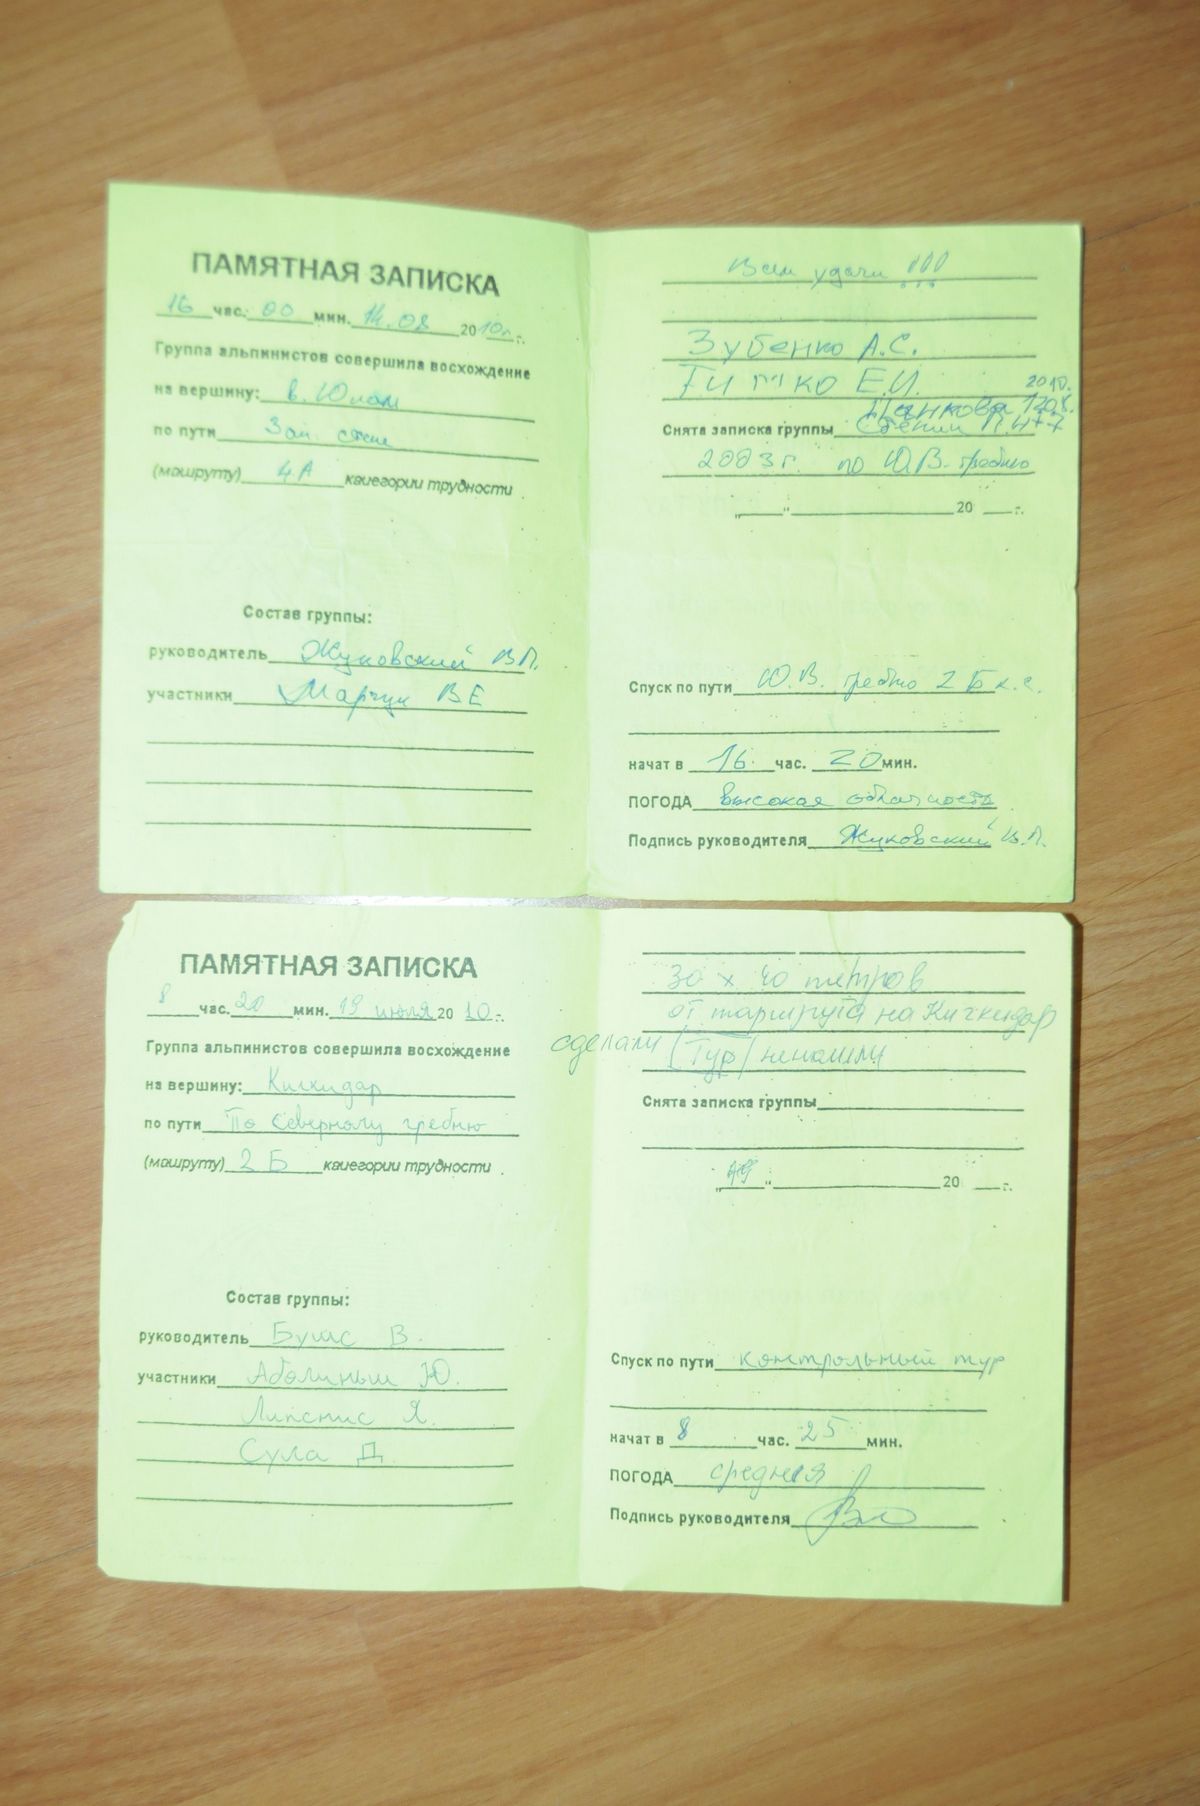 ПАМЯТНАЯ ЗАПИСКА
16 час. 00 мин. 14.08 2010г.
Группа альпинистов совершила восхождение
на вершину: в. Юлам
по пути Зап. стене
(маршруту) 4А категории трудности
Состав группы:
руководитель Жуковский В.П.
участники Марчук В Е
Всем удачи !!!
Зубенко А.С.
Титко Е.И.
2010.
Снята записка группы
2003г. по Ю.В. гребню
„ “ 20 г.
Спуск по пути Ю.В. гребню 2 Б к.с.
начат в 16. час. 20 мин.
ПОГОДА высокая облачность
Подпись руководителя Жуковский В.П.
ПАМЯТНАЯ ЗАПИСКА
8 час. 20 мин. 19 июля 2010 г.
Группа альпинистов совершила восхождение
на вершину: Кичкидар
по пути По северному гребню
(маршруту) 2 Б категории трудности
Состав группы:
руководитель В.
участники Аболиньш Ю.
Я.
Сула Д.
30 х 40 метров
от маршрута на Кичкидар
сделали (Тур) ненашли
Снята записка группы
„19“ 20 г.
Спуск по пути контрольный тур
начат в 8 час. 25 мин.
ПОГОДА средняя
Подпись руководителя